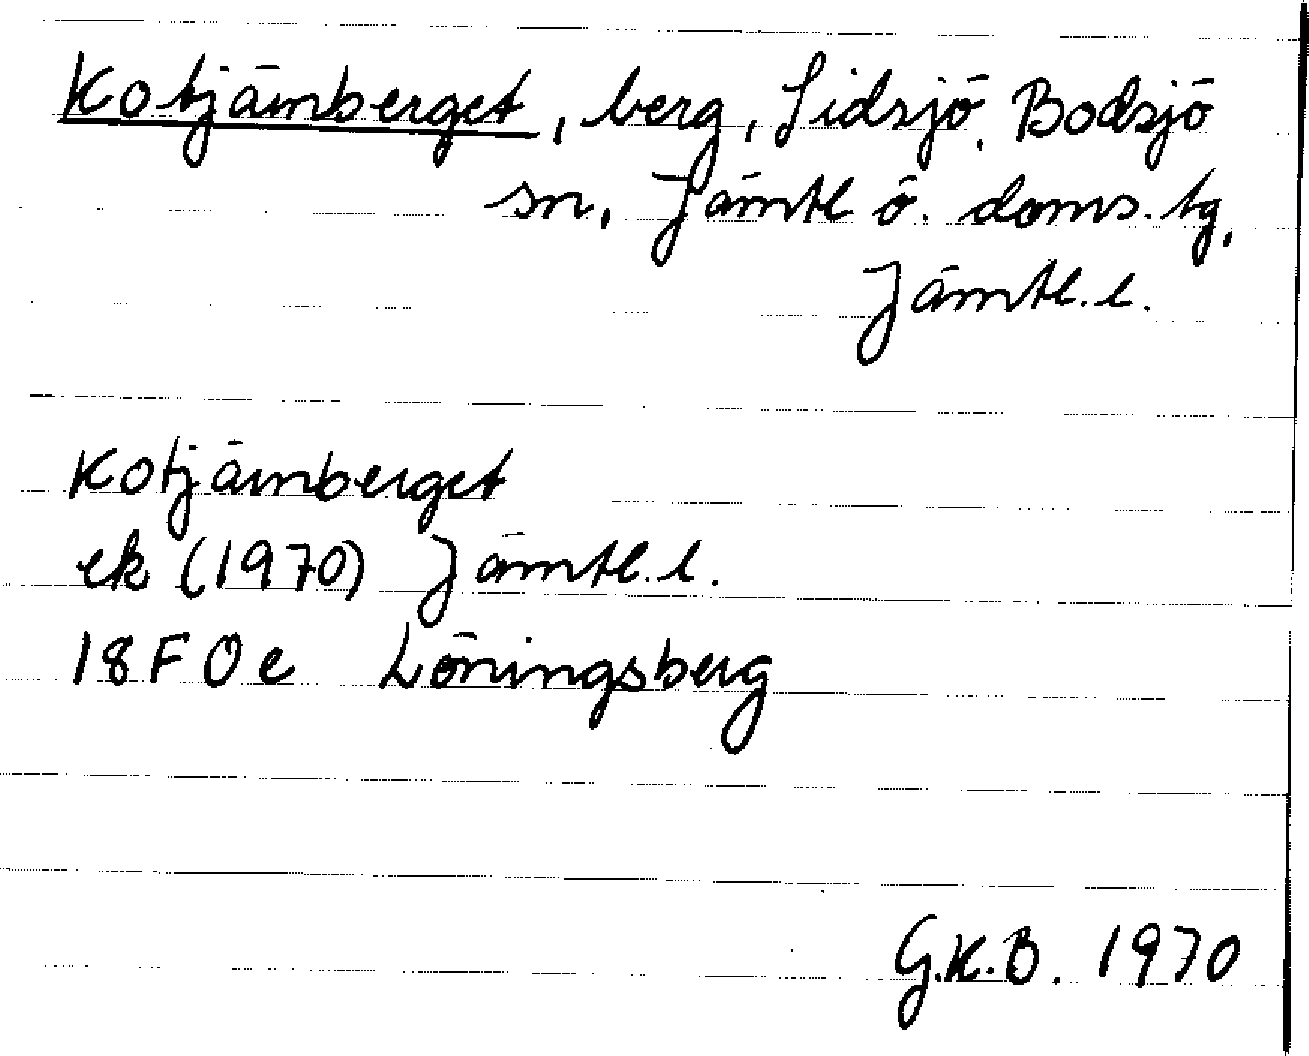 Kotjämberget, berg, Sidsjö, Bodsjö
sn, Jämtl ö. doms. tg,
Jämtl. l.
Kotjämberget
ek (1970) Jämtl. l.
18F 0e Löningsberg
G.K.B. 1970